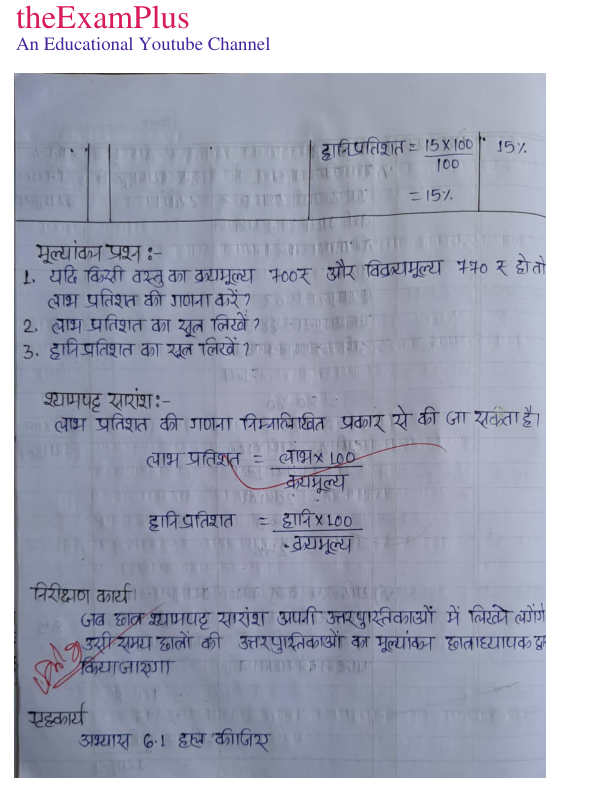 theExamPlus
An Educational Youtube Channel
हानिप्रतिशत = 15 × 100 / 100 15%
= 15%
मूल्यांकन प्रश्न :-
1. यदि किसी वस्तु का क्रयमूल्य 700रु और विक्रयमूल्य 770 रु हो तो
लाभ प्रतिशत की गणना करें?
2. लाभ प्रतिशत का सूत्र लिखें?
3. हानिप्रतिशत का सूत्र लिखें?
श्यामपट्ट सारांश:-
लाभ प्रतिशत की गणना निम्नलिखित प्रकार से की जा सकता है।
लाभ प्रतिशत = लाभ × 100 / क्रयमूल्य
हानिप्रतिशत = हानि × 100 / क्रयमूल्य
निरीक्षण कार्य
जब छात्र श्यामपट्ट सारांश अपनी उत्तरपुस्तिकाओं में लिखने लगेंगे
उसी समय छात्रों की उत्तरपुस्तिकाओं का मूल्यांकन छात्राध्यापक
किया जाएगा
गृहकार्य
अभ्यास 6.1 हल कीजिए